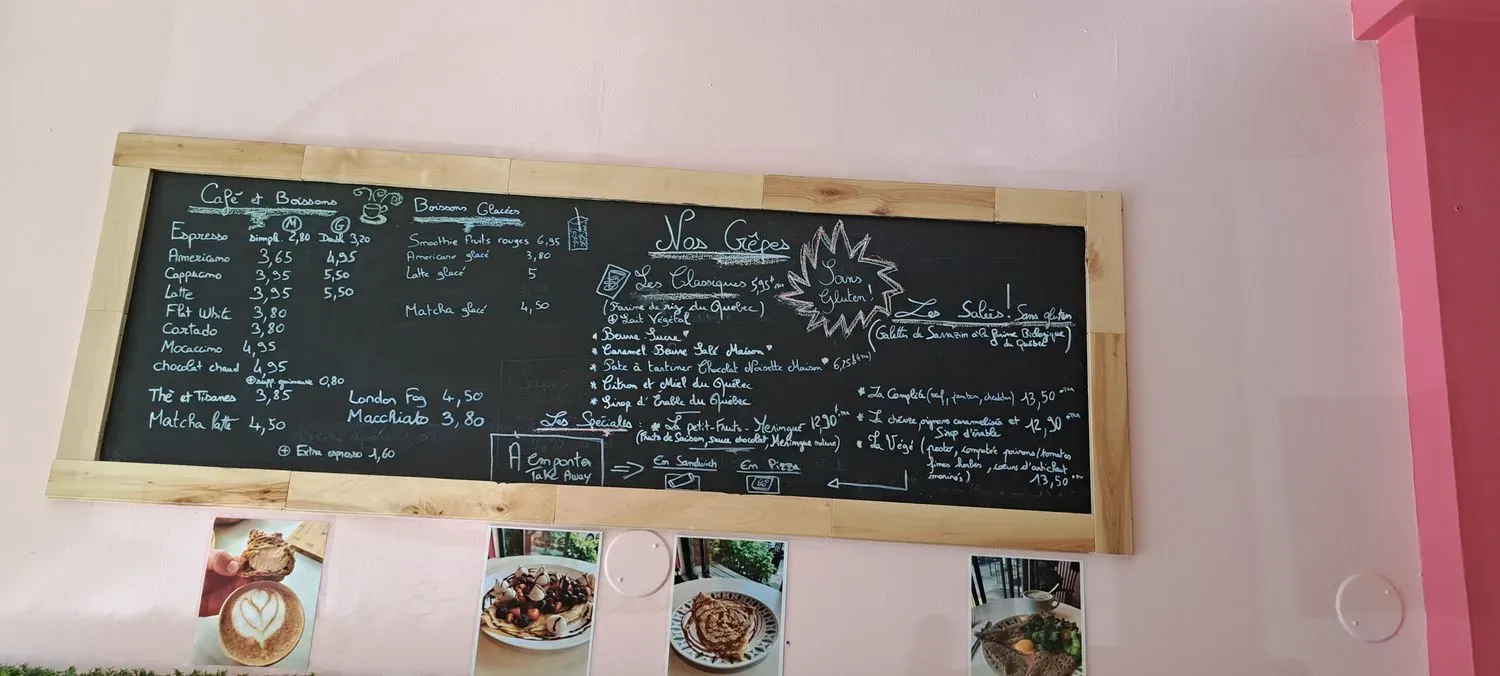 Café et Boissons
M G
Espresso simple 2,80 Doub 3,20
Americano 3,65 4,95
Cappucino 3,95 5,50
Latte 3,95 5,50
Flat White 3,80
Cortado 3,80
Mocaccino 4,95
chocolat chaud 4,95
+ supp. guimauve 0,80
Thé et Tisanes 3,85
Matcha latte 4,50
London Fog 4,50
Macchiato 3,80
+ Extra espresso 1,60
Boissons Glacées
Smoothie fruits rouges 6,95
Americano glacé 3,80
Latte glacé 5
Matcha glacé 4,50
Nos Crêpes
Sans
Gluten!
Les Classiques 5,95
(Farine de riz du Quebec)
+ Lait Végétal
* Beurre Sucre
* Caramel Beurre Salé Maison
* Pate à tartiner Chocolat Noisette Maison 6,75
* Citron et Miel du Québec
* Sirop d'Erable du Québec
Les Spéciales : * La petit-Fruits-Meringue 12,90
(Fruits de Saison, sauce chocolat, Meringue maison)
À emporter
Take Away
En Sandwich
En Pizza
Les Salées! Sans gluten
(Galettes de Sarrazin à la farine Biologique
du Québec)
* La Complète (oeuf, jambon, cheddar) 13,50
* La chèvre pignons caramelisés et 12,90
Sirop d'érable
* La Végé (pesto, compotée poivrons/tomates
fines herbes, coeurs d'artichaut
marinés) 13,50